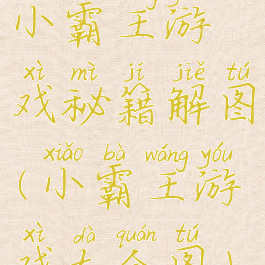 小霸王游
xì mì jí jiě tú
戏秘籍解图
xiǎo bà wáng yóu
(小霸王游
xì dà quán tú
戏大全图)